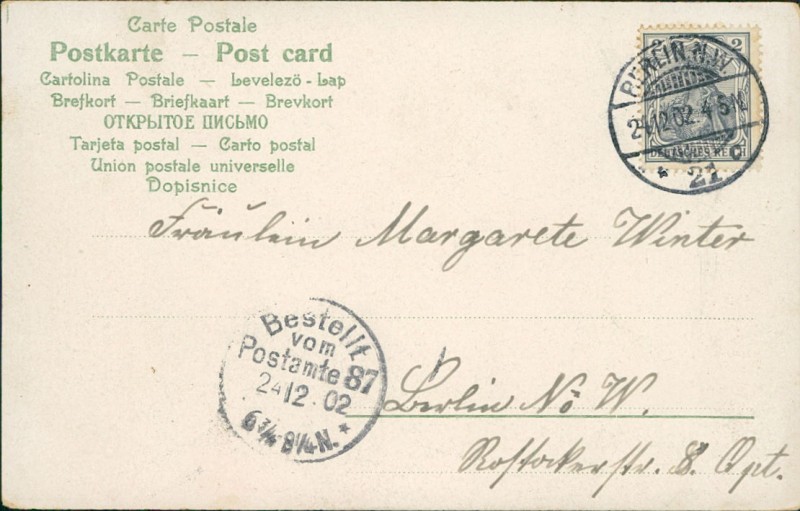 Carte Postale
Postkarte — Post card
Cartolina Postale — Levelezö-Lap
Brefkort — Briefkaart — Brevkort
ОТКРЫТОЕ ПИСЬМО
Tarjeta postal — Carto postal
Union postale universelle
Dopisnice
2
DEUTSCHES REICH
BERLIN N.W.
12.02. 4-5N.
* 21 c
Fräulein Margarete Winter
Bestellt
vom
Postamte 87
24/12.02
6¾-8¼N. *
Berlin No. W.
Rostockerstr. 8. Opt.